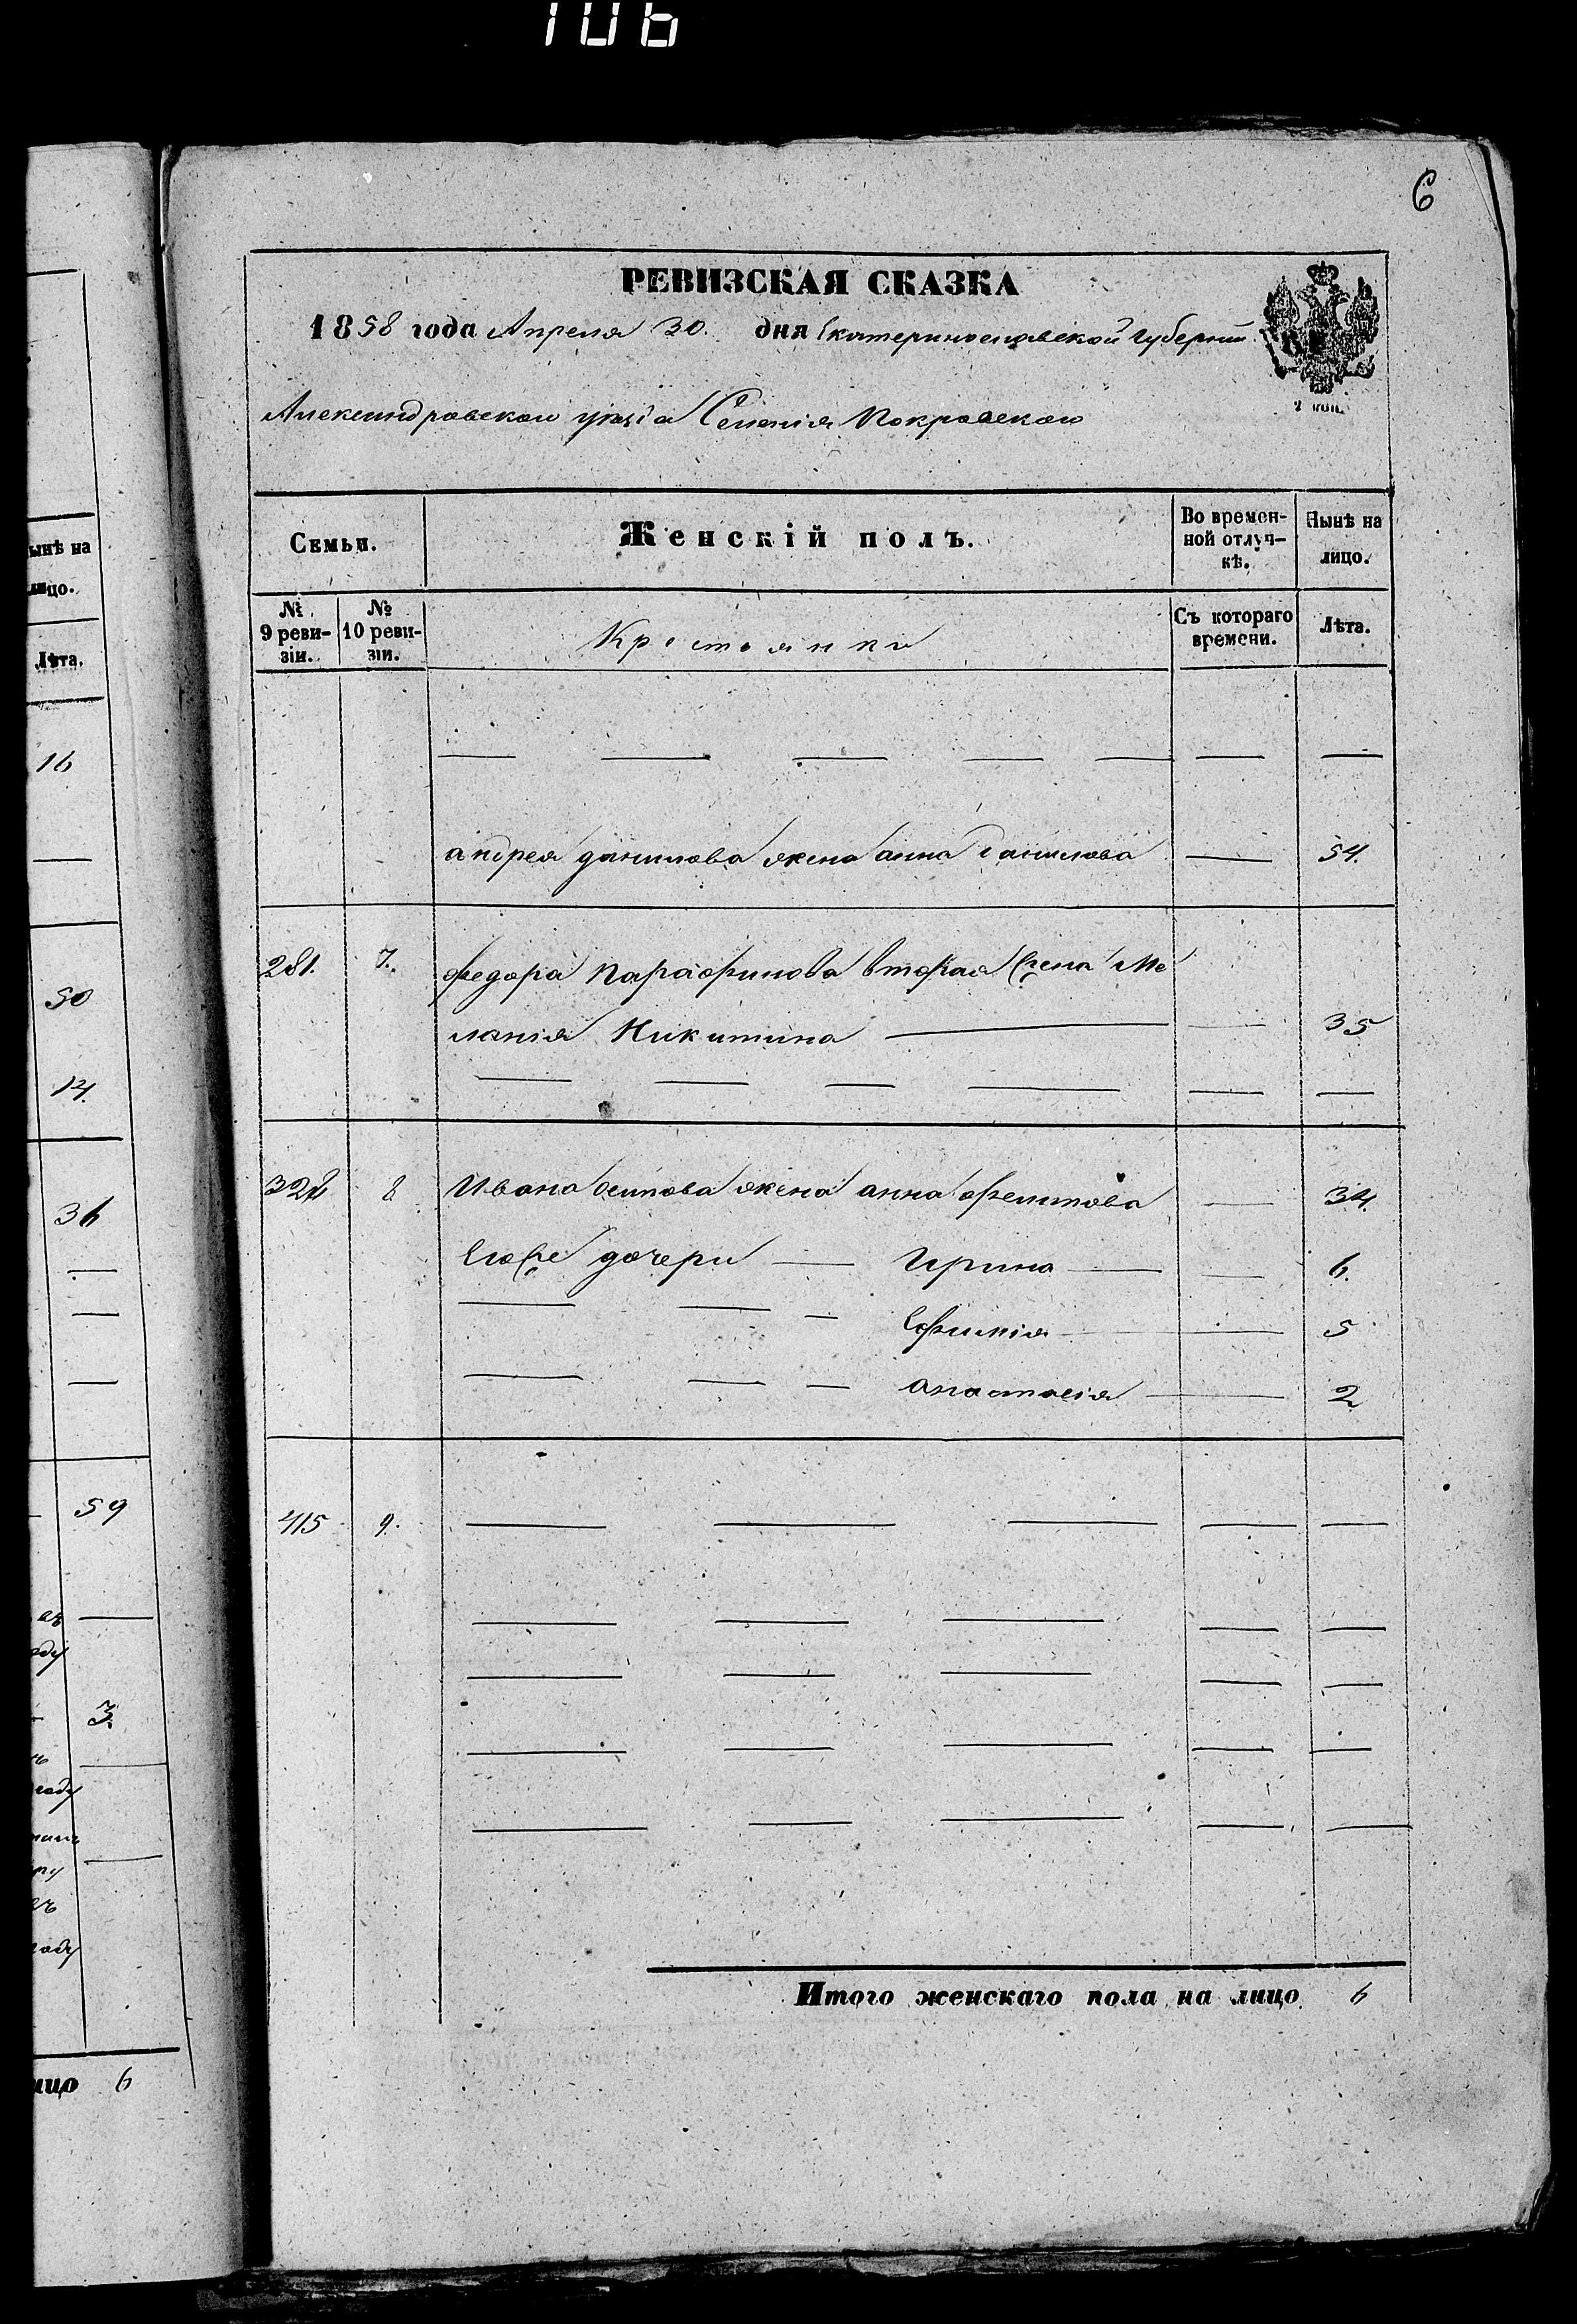 106
6
РЕВИЗСКАЯ СКАЗКА
1858 года Апреля 30. дня Екатеринославской Губернии
2 коп.
Александровскаго уезда Селенія Покровскаго
Семьи. Женскій полъ. Во времен- Нынѣ на
ной отлуч- лицо.
кѣ.
№ № Крестьянки Съ котораго Лѣта.
9 реви- 10 реви- времени.
зіи. зіи.
андрея данилова жена анна данилова — 54.
281. 7. федора Парафинова вторая жена Ме
ланія Никитина — 35
322 8 Ивана осипова жена анна филипова — 34.
Егоже дочери — Ирина — 6.
Ефимія — 5
анастасія — 2
415 9.
Итого женскаго пола на лицо 6
ынѣ на
лицо.
Лѣта.
16
50
14.
36
59
3.
году
году
лицо 6